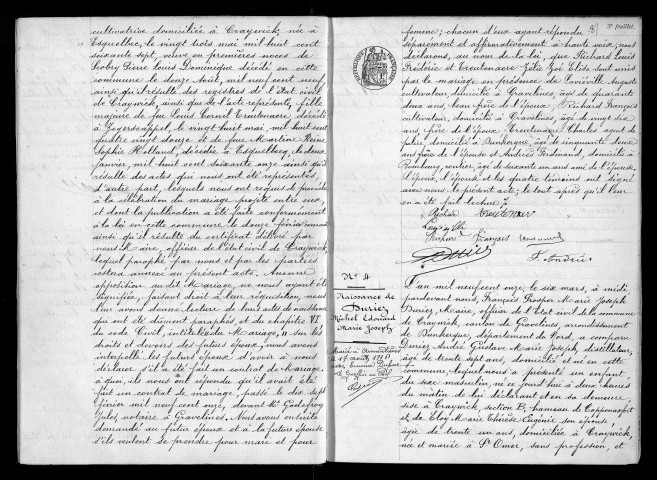 cultivatrice domiciliée à Craywick, née à
Esquelbec, le vingt trois mai mil huit cent
soixante sept, veuve en premières noces de
Pierre Louis Dominique décédé en cette
commune le douze Août, mil neuf cent neuf
ainsi qu'il résulte des registres de l'état civil
de Craywick, ainsi que de l'acte représenté, fille
majeure de feu Louis Cornil Creutenaere décédé
à le vingt huit mai, mil huit cent
quatre vingt douze et de feue Martine Reine
Sophie Holland, décédée à Esquelbecq, le deux
janvier, mil huit cent soixante onze ainsi qu'il
résulte des actes qui nous ont été représentés,
d'autre part, lesquels nous ont requis de procéder
à la célébration du mariage projeté entre eux,
et dont la publication a été faite conformément
à la loi en cette commune le douze février
ainsi qu'il résulte du certificat délivré par
nous Maire, officier de l'état civil de Craywick
lequel paraphé par nous et par les parties
restera annexé au présent acte. Aucune
opposition au dit Mariage, ne nous ayant été
signifiée, faisant droit à leur réquisition, nous
leur avons donné lecture de leurs actes de naissance
qui ont été dûment paraphés et du chapitre VI
du code Civil, intitulé du Mariage, sur les
droits et devoirs des futurs époux, nous avons
interpellé les futurs époux d'avoir à nous
déclarer s'il a été fait un contrat de mariage.
à quoi, ils nous ont répondu qu'il avait été
fait un contrat de mariage, passé le dix sept
février mil neuf cent onze, devant Me Godefroy
Jules, notaire à Gravelines. Nous avons ensuite
demandé au futur époux et à la future épouse
s'ils veulent se prendre pour mari et pour
femme; chacun d'eux ayant répondu
séparément et affirmativement à haute voix, nous
déclarons, au nom de la loi, que Richard Louis
Frédéric et Creutenaere Zélie Zoé Elise sont unis
par le mariage en présence de Laviéville Auguste
cultivateur, domicilié à Gravelines, âgé de quarante
deux ans, beau frère de l'époux, Richard François
cultivateur, domicilié à Gravelines, âgé de vingt six
ans, frère de l'époux, Creutenaere Charles agent de
police domicilié à Dunkerque, âgé de cinquante deux
ans frère de l'épouse et Andriès Ferdinand, domicilié à
Bourbourg, rentier, âgé de soixante ans ami de l'épouse.
L'époux, l'épouse et les quatre témoins ont signé
avec nous le présent acte, le tout après qu'il leur
en a été fait lecture.
Richard
François
F. Andriès
No 4
Naissance de
Duriez
Michel Edouard
Marie Joseph
Marié à Armentières
le
avec
L'an mil neuf cent onze, le six mars, à midi
pardevant nous, François Prosper Marie Joseph
Duriez Maire, officier de l'État civil de la commune
de Craywick, canton de Gravelines, arrondissement
de Dunkerque, département du Nord, a comparu
Duriez André Gustave Marie Joseph, distillateur,
âgé de trente sept ans, domicilié et né en cette
commune, lequel nous a présenté un enfant
du sexe masculin, né ce jourd'hui à deux heures
du matin de lui déclarant et en sa demeure,
sise à Craywick, section B, hameau de Coppenaxfort
et de Eloy Marie Thérèse Eugénie son épouse,
âgée de trente un ans, domiciliée à Craywick,
née et mariée à St Omer, sans profession, et